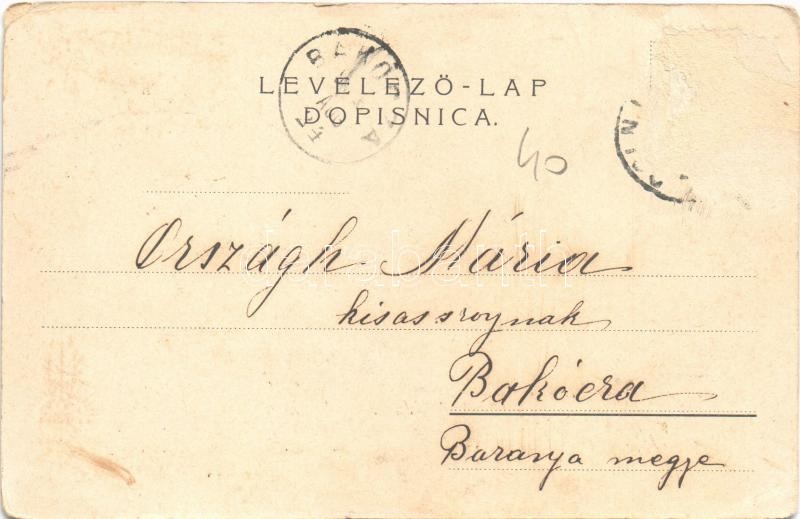 LEVELEZÖ-LAP
DOPISNICA.
40
Országh Mária
kisasszonynak
Bakócza
Baranya megye